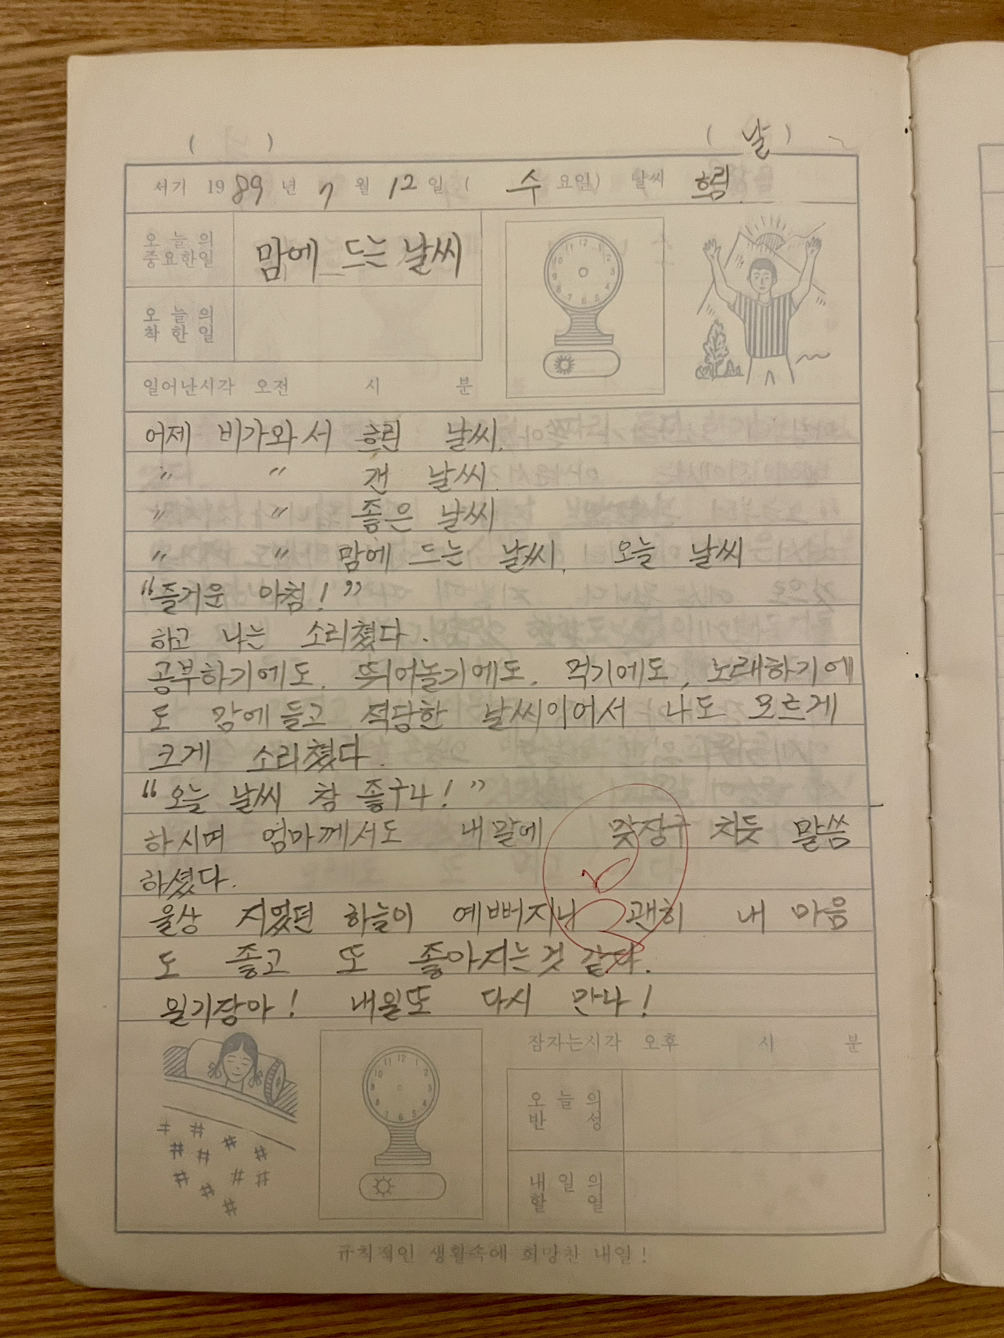 ( ) ( 날 )
서기 1989년 7월 12일 ( 수 요일) 날씨 흐림
오늘의 중요한일 맘에 드는 날씨
오늘의 착한일
일어난시각 오전 시 분
어제 비가와서 흐린 날씨.
〃 〃 갠 날씨.
〃 〃 좋은 날씨
〃 〃 맘에 드는 날씨. 오늘 날씨
"즐거운 아침!"
하고 나는 소리쳤다.
공부하기에도, 뛰어놀기에도, 먹기에도, 노래하기에
도 맘에 들고 적당한 날씨이어서 나도 모르게
크게 소리쳤다.
"오늘 날씨 참 좋구나!"
하시며 엄마께서도 내말에 맞장구 치듯 말씀
하셨다.
울상 지었던 하늘이 예뻐지니 괜히 내 마음
도 좋고 또 좋아지는것 같다.
일기장아! 내일또 다시 만나!
잠자는시각 오후 시 분
오늘의 반성
내일의 할일
규칙적인 생활속에 희망찬 내일!